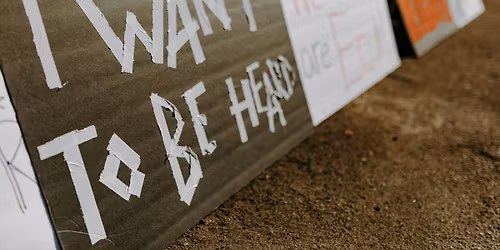 I WANT
TO BE HEARD
are